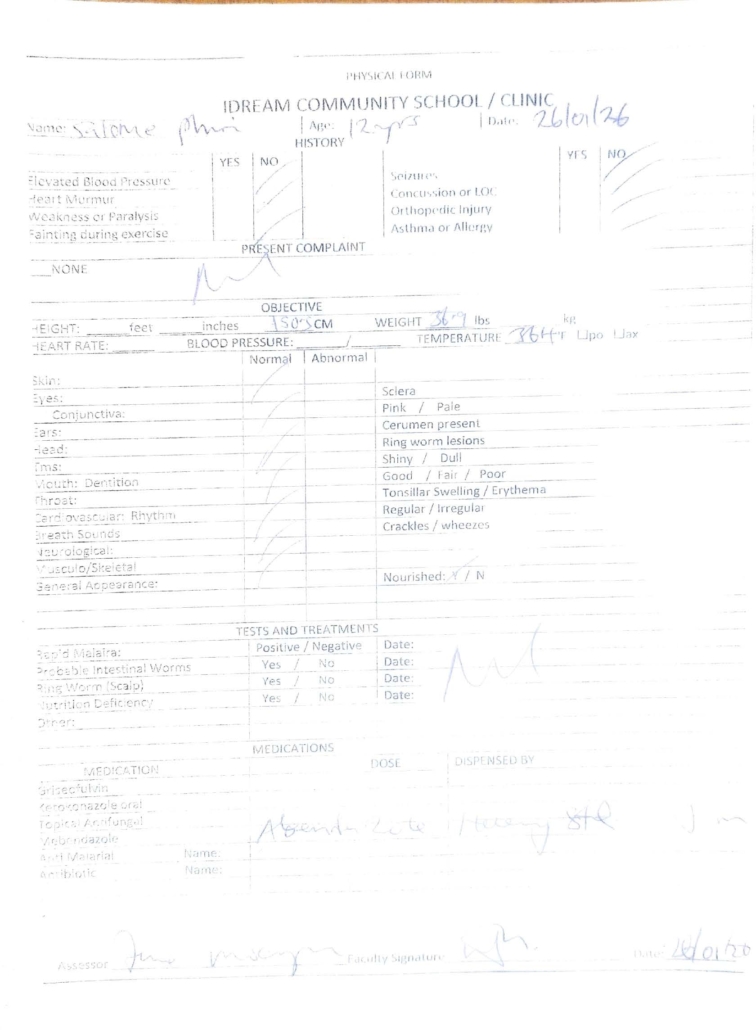 PHYSICAL FORM
IDREAM COMMUNITY SCHOOL / CLINIC
Name: Phiri Age: 12yrs Date: 26/01/26
HISTORY
YES NO YES NO
Elevated Blood Pressure Seizures
Heart Murmur Concussion or LOC
Weakness or Paralysis Orthopedic Injury
Fainting during exercise Asthma or Allergy
PRESENT COMPLAINT
NONE
Nil
OBJECTIVE
HEIGHT: feet inches 150.5 CM WEIGHT 36.9 lbs kg
HEART RATE: BLOOD PRESSURE: / TEMPERATURE 36.4 °F po ax
Normal Abnormal
Skin:
Eyes: Sclera
Conjunctiva: Pink / Pale
Ears: Cerumen present
Head: Ring worm lesions
Tms: Shiny / Dull
Mouth: Dentition Good / Fair / Poor
Throat: Tonsillar Swelling / Erythema
Cardiovascular: Rhythm Regular / Irregular
Breath Sounds Crackles / wheezes
Neurological:
Musculo/Skeletal
General Appearance: Nourished: Y / N
TESTS AND TREATMENTS
Rap'd Malaira: Positive / Negative Date:
Probable Intestinal Worms Yes / No Date:
Ring Worm (Scalp) Yes / No Date:
Nutrition Deficiency Yes / No Date:
Other:
Nil
MEDICATIONS
MEDICATION DOSE DISPENSED BY
Grisecfulvin
Ketoconazole oral
Topical Antifungal
Mebendazole
Anti Malarial Name:
Antibiotic Name:
Assessor Faculty Signature Date: 26/01/26